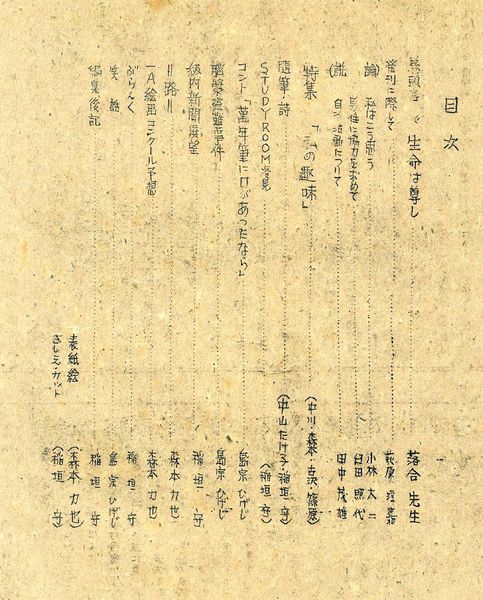 目次
巻頭言 《生命は尊し 落合先生
発刊に際して 萩原
論 私はこう思う 小林太二
男性に協力を求めて 臼田照代
説 自治活動について 田中茂雄
特集 「私の趣味」 (中川・森本・古沢・篠原)
随筆・詩 (中山たけ子・稲垣守)
STUDY ROOM (稲垣 守)
コント「萬年筆に口があったなら」 島宗ひげじ
盗難事件 島宗ひげじ
級内新聞展望 稲垣 守
〃路〃 森本力也
一A絵画コンクール予想 森本力也
がらんく 稲垣 守
笑話 島宗ひげじ
編集後記 稲垣 守
表紙絵 (森本力也)
さしえカット (稲垣 守)